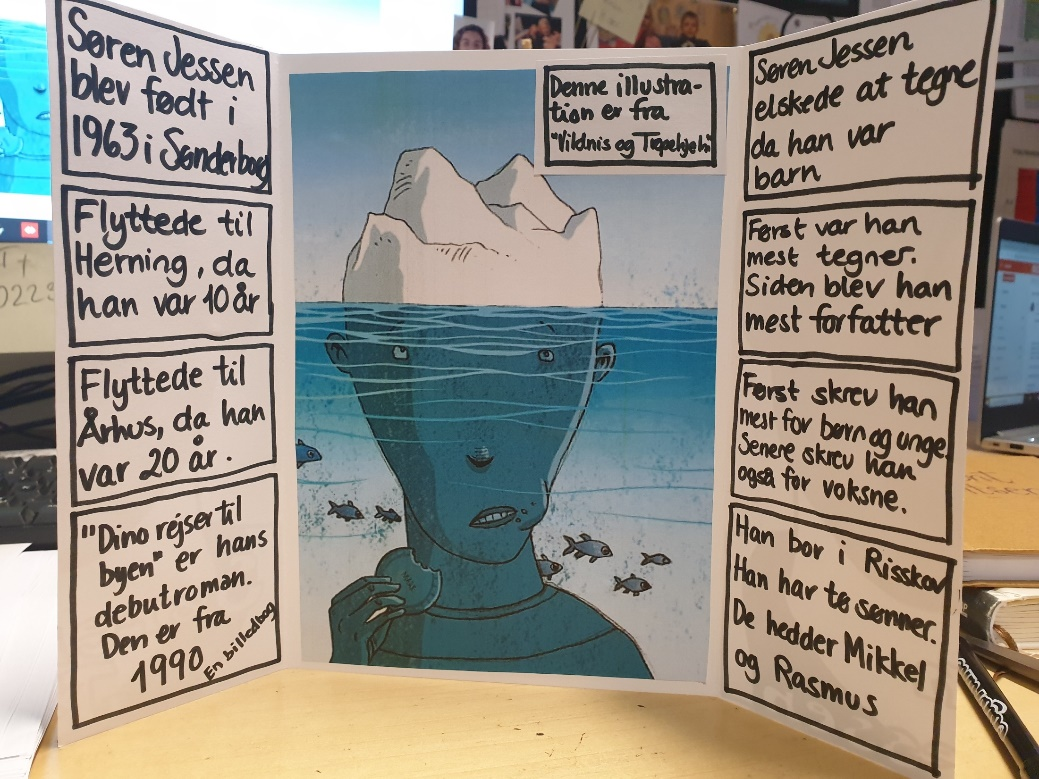 Søren Jessen
blev født i
1963 i Sønderbog
Flyttede til
Herning, da
han var 10 år
Flyttede til
Århus, da han
var 20 år.
"Dino rejser til
byen" er hans
debutroman.
Den er fra
1990
En billedbog
Denne illustra-
tion er fra
"Vildnis og
Søren Jessen
elskede at tegne
da han var
barn
Først var han
mest tegner.
Siden blev han
mest forfatter
Først skrev han
mest for børn og unge.
Senere skrev han
også for voksne.
Han bor i Risskov
Han har to sønner.
De hedder Mikkel
og Rasmus